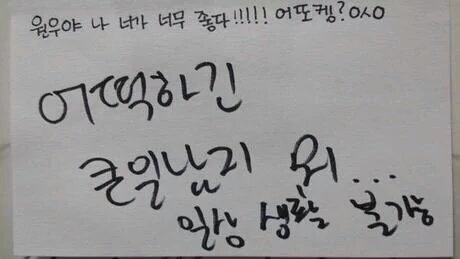 원우야 나 너가 너무 좋다!!!!! 어또케?ㅇㅅㅇ
어떡하긴
큰일났지 뭐...
일상 생활 불가능